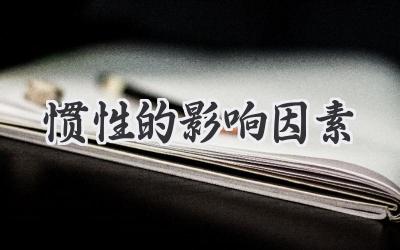 惯性的影响因素